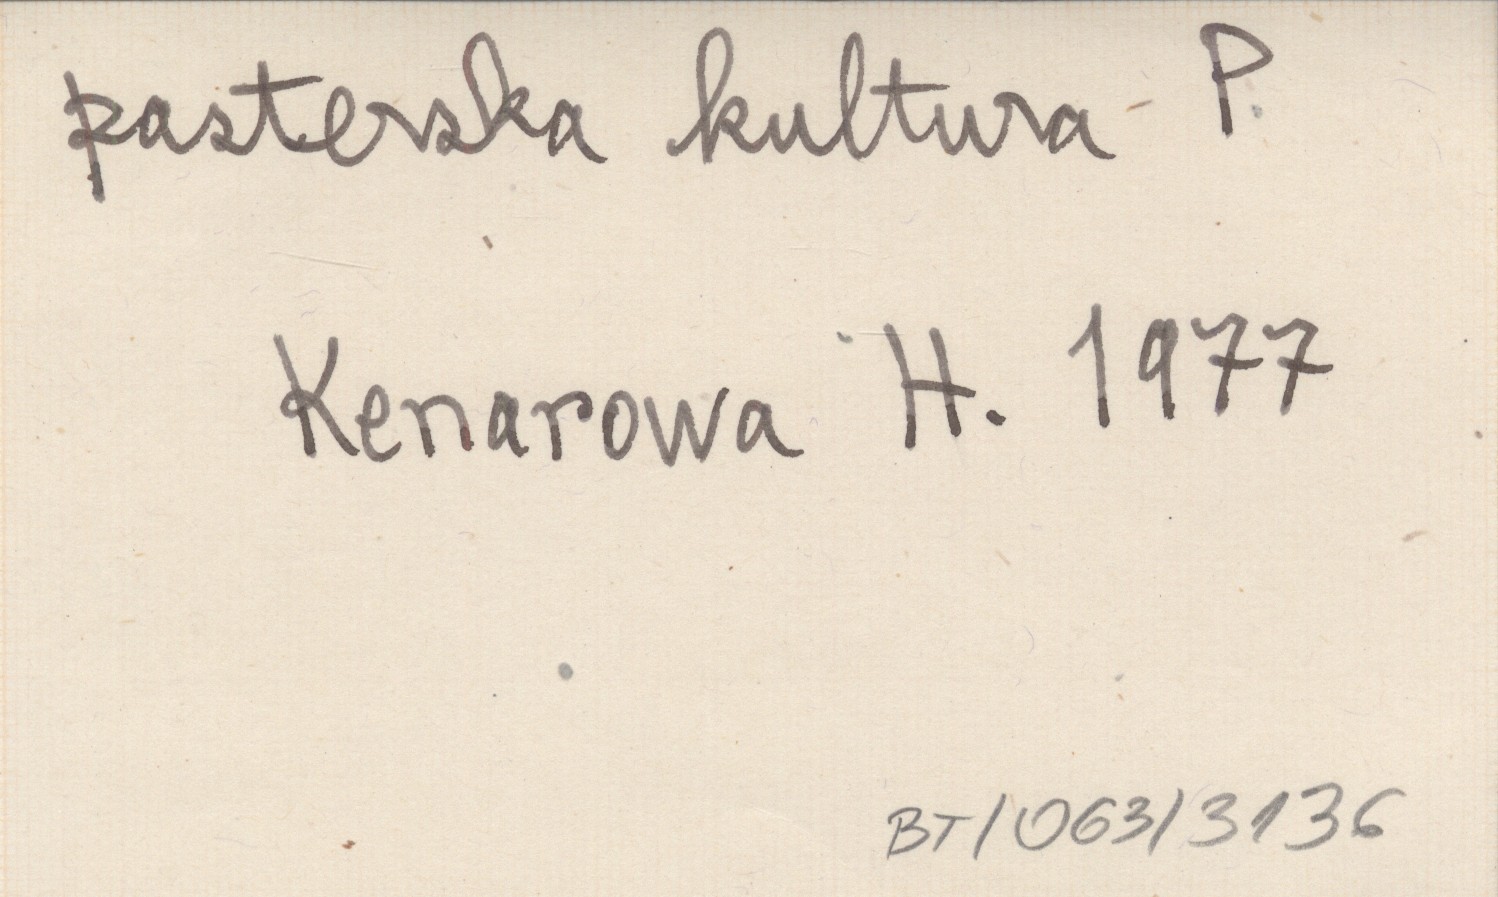 pasterska kultura P.
Kenarowa H. 1977
BT/063/3136